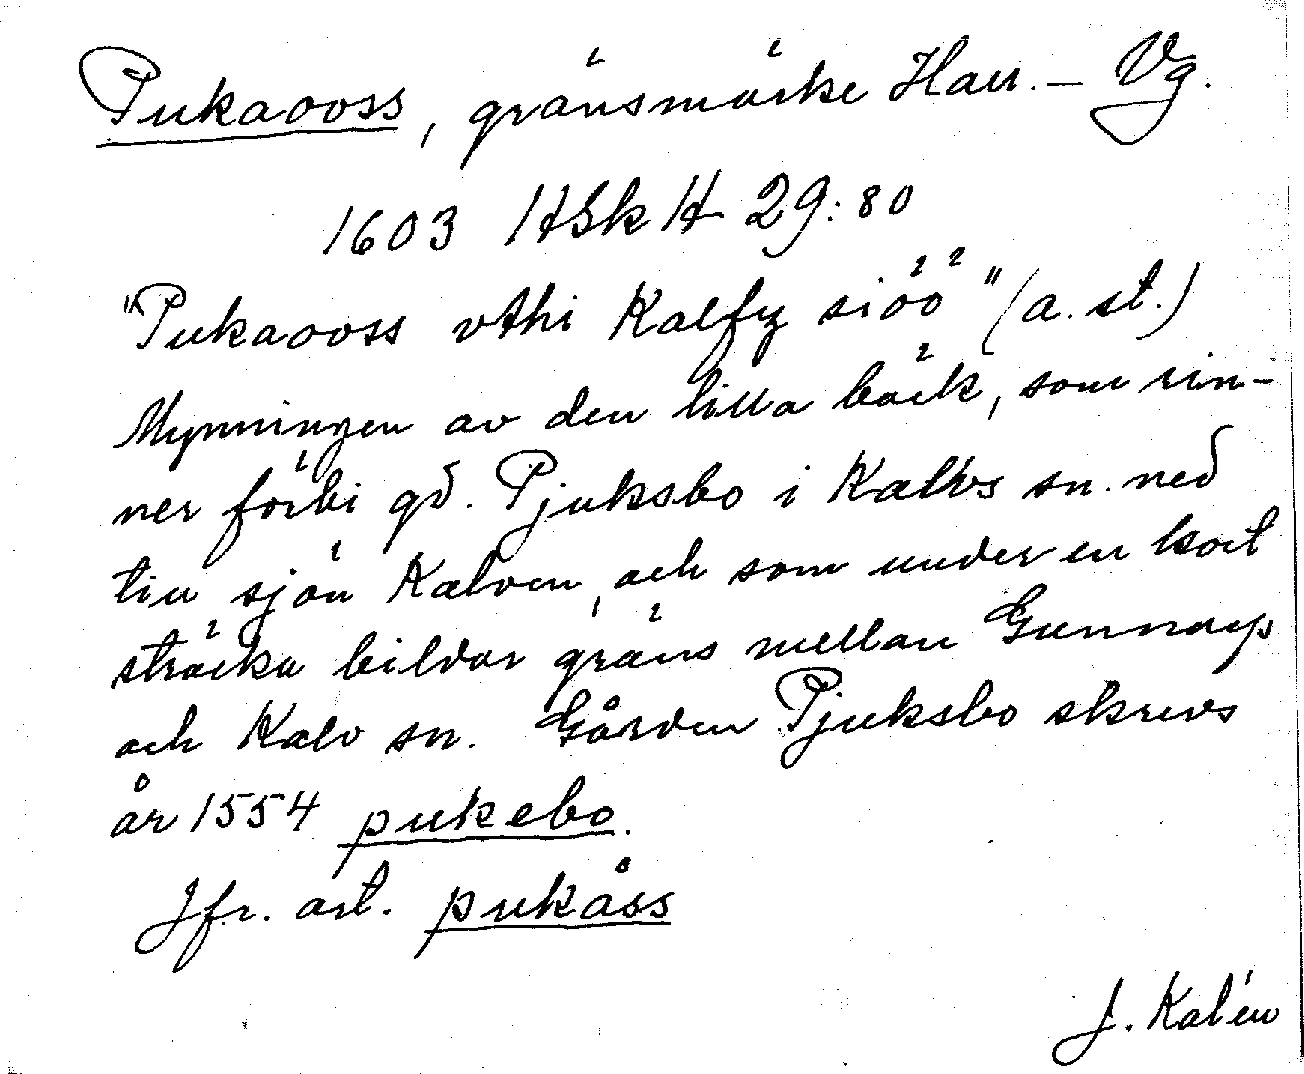 Pukaooss, gränsmärke Hall. – Vg.
1603 HSk H 29:80
"Pukaooss vthi Kalfz siöö" (a. st.)
Mynningen av den lilla bäck, som rin-
ner förbi gd. Pjuksbo i Kalvs sn. ned
till sjön Kalven, och som under en kort
sträcka bildar gräns mellan Gunnarps
och Kalv sn. Gården Pjuksbo skrevs
år 1554 pukebo.
Jfr. art. pukåss
J. Kalén